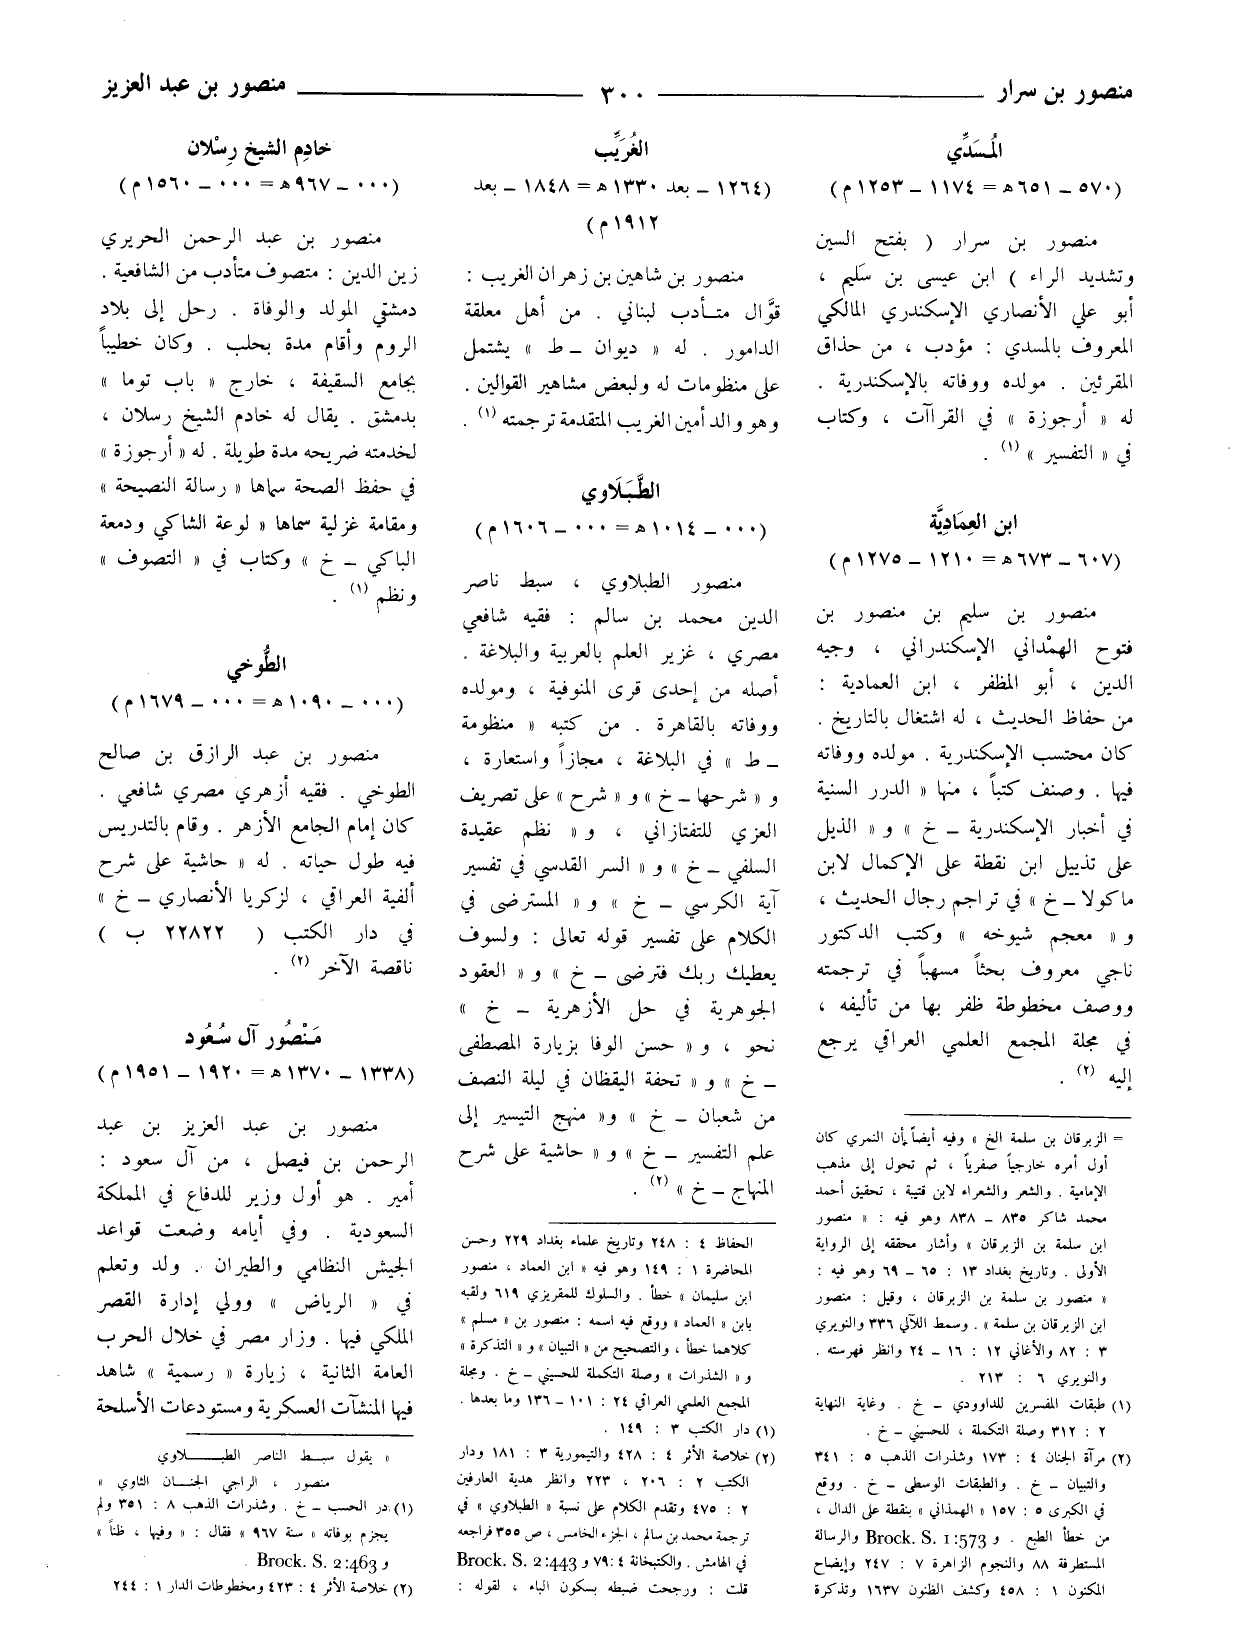 منصور بن سرار ــــ ٣٠٠ ــــ منصور بن عبد العزيز
المُسَدِّي
(٥٧٠ – ٦٥١ ه = ١١٧٤ – ١٢٥٣ م)
منصور بن سرار ( بفتح السين
وتشديد الراء ) ابن عيسى بن سَليم ،
أبو علي الأنصاري الإسكندري المالكي
المعروف بالمسدي : مؤدب ، من حذاق
المقرئين . مولده ووفاته بالإسكندرية .
له « أرجوزة » في القراآت ، وكتاب
في « التفسير » (١) .
ابن العِمَادِيَّة
(٦٠٧ – ٦٧٣ ه = ١٢١٠ – ١٢٧٥ م)
منصور بن سليم بن منصور بن
فتوح الهمْداني الإسكندراني ، وجيه
الدين ، أبو المظفر ، ابن العمادية :
من حفاظ الحديث ، له اشتغال بالتاريخ .
كان محتسب الإسكندرية . مولده ووفاته
فيها . وصنف كتباً ، منها « الدرر السنية
في أخبار الإسكندرية – خ » و « الذيل
على تذييل ابن نقطة على الإكمال لابن
ماكولا – خ » في تراجم رجال الحديث ،
و « معجم شيوخه » وكتب الدكتور
ناجي معروف بحثاً مسهباً في ترجمته
ووصف مخطوطة ظفر بها من تأليفه ،
في مجلة المجمع العلمي العراقي يرجع
إليه (٢) .
= الزبرقان بن سلمة الخ » وفيه أيضاً بأن النمري كان
أول أمره خارجياً صفرياً ، ثم تحول إلى مذهب
الإمامية . والشعر والشعراء لابن قتيبة ، تحقيق أحمد
محمد شاكر ٨٣٥ – ٨٣٨ وهو فيه : « منصور
ابن سلمة بن الزبرقان » وأشار محققه إلى الرواية
الأولى . وتاريخ بغداد ١٣ : ٦٥ – ٦٩ وهو فيه :
« منصور بن سلمة بن الزبرقان ، وقيل : منصور
ابن الزبرقان بن سلمة » . وسمط اللآلي ٣٣٦ والنويري
٣ : ٨٢ والأغاني ١٢ : ١٦ – ٢٤ وانظر فهرسته .
والنويري ٦ : ٢١٣ .
(١) طبقات المفسرين للداوودي – خ . وغاية النهاية
٢ : ٣١٢ وصلة التكملة ، للحسيني – خ .
(٢) مرآة الجنان ٤ : ١٧٣ وشذرات الذهب ٥ : ٣٤١
والتبيان – خ . والطبقات الوسطى – خ . ووقع
في الكبرى ٥ : ١٥٧ « الهمذاني » بنقطة على الدال ،
من خطأ الطبع . و Brock. S. 1:573 والرسالة
المستطرفة ٨٨ والنجوم الزاهرة ٧ : ٢٤٧ وإيضاح
المكنون ١ : ٤٥٨ وكشف الظنون ١٦٣٧ وتذكرة
الغُرَيِّب
(١٢٦٤ – بعد ١٣٣٠ ه = ١٨٤٨ – بعد
١٩١٢ م)
منصور بن شاهين بن زهران الغريب :
قوَّال متأدب لبناني . من أهل معلقة
الدامور . له « ديوان – ط » يشتمل
على منظومات له ولبعض مشاهير القوالين .
وهو والد أمين الغريب المتقدمة ترجمته (١) .
الطَّبَلَاوي
(٠٠٠ – ١٠١٤ ه = ٠٠٠ – ١٦٠٦ م)
منصور الطبلاوي ، سبط ناصر
الدين محمد بن سالم : فقيه شافعي
مصري ، غزير العلم بالعربية والبلاغة .
أصله من إحدى قرى المنوفية ، ومولده
ووفاته بالقاهرة . من كتبه « منظومة
– ط » في البلاغة ، مجازاً واستعارة ،
و « شرحها – خ » و « شرح » على تصريف
العزي للتفتازاني ، و « نظم عقيدة
السلفي – خ » و « السر القدسي في تفسير
آية الكرسي – خ » و « المسترضى في
الكلام على تفسير قوله تعالى : ولسوف
يعطيك ربك فترضى – خ » و « العقود
الجوهرية في حل الأزهرية – خ »
نحو ، و « حسن الوفا بزيارة المصطفى
– خ » و « تحفة اليقظان في ليلة النصف
من شعبان – خ » و« منهج التيسير إلى
علم التفسير – خ » و « حاشية على شرح
المنهاج – خ » (٢) .
الحفاظ ٤ : ٢٤٨ وتاريخ علماء بغداد ٢٢٩ وحسن
المحاضرة ١ : ١٤٩ وهو فيه « ابن العماد ، منصور
ابن سليمان » خطأ . والسلوك للمقريزي ٦١٩ ولقبه
بابن « العماد » ووقع فيه اسمه : منصور بن « مسلم »
كلاهما خطأ ، والتصحيح من « التبيان » و « التذكرة »
و « الشذرات » وصلة التكملة للحسيني – خ . ومجلة
المجمع العلمي العراقي ٢٤ : ١٠١ – ١٣٦ وما بعدها .
(١) دار الكتب ٣ : ١٤٩ .
(٢) خلاصة الأثر ٤ : ٤٢٨ والتيمورية ٣ : ١٨١ ودار
الكتب ٢ : ٢٠٦ ، ٢٢٣ وانظر هدية العارفين
٢ : ٤٧٥ وتقدم الكلام على نسبة « الطبلاوي » في
ترجمة محمد بن سالم ، الجزء الخامس ، ص ٣٥٥ فراجعه
في الهامش . والكتبخانة ٤ : ٧٩ و Brock. S. 2:443
قلت : ورجحت ضبطه بسكون الباء ، لقوله :
خادِم الشيخ رِسْلان
(٠٠٠ – ٩٦٧ ه = ٠٠٠ – ١٥٦٠ م)
منصور بن عبد الرحمن الحريري
زين الدين : متصوف متأدب من الشافعية .
دمشقي المولد والوفاة . رحل إلى بلاد
الروم وأقام مدة بحلب . وكان خطيباً
بجامع السقيفة ، خارج « باب توما »
بدمشق . يقال له خادم الشيخ رسلان ،
لخدمته ضريحه مدة طويلة . له « أرجوزة »
في حفظ الصحة سماها « رسالة النصيحة »
ومقامة غزلية سماها « لوعة الشاكي ودمعة
الباكي – خ » وكتاب في « التصوف »
ونظم (١) .
الطُّوخي
(٠٠٠ – ١٠٩٠ ه = ٠٠٠ – ١٦٧٩ م)
منصور بن عبد الرازق بن صالح
الطوخي . فقيه أزهري مصري شافعي .
كان إمام الجامع الأزهر . وقام بالتدريس
فيه طول حياته . له « حاشية على شرح
ألفية العراقي ، لزكريا الأنصاري – خ »
في دار الكتب ( ٢٢٨٢٢ ب )
ناقصة الآخر (٢) .
مَنْصُور آل سُعُود
(١٣٣٨ – ١٣٧٠ ه = ١٩٢٠ – ١٩٥١ م)
منصور بن عبد العزيز بن عبد
الرحمن بن فيصل ، من آل سعود :
أمير . هو أول وزير للدفاع في المملكة
السعودية . وفي أيامه وضعت قواعد
الجيش النظامي والطيران . ولد وتعلم
في « الرياض » وولي إدارة القصر
الملكي فيها . وزار مصر في خلال الحرب
العامة الثانية ، زيارة « رسمية » شاهد
فيها المنشآت العسكرية ومستودعات الأسلحة
« يقول سبط الناصر الطبلاوي
منصور ، الراجي الجنان الثاوي »
(١) در الحبب – خ . وشذرات الذهب ٨ : ٣٥١ ولم
يجزم بوفاته « سنة ٩٦٧ » فقال : « وفيها ، ظناً »
و Brock. S. 2:463 .
(٢) خلاصة الأثر ٤ : ٤٢٣ ومخطوطات الدار ١ : ٢٤٤